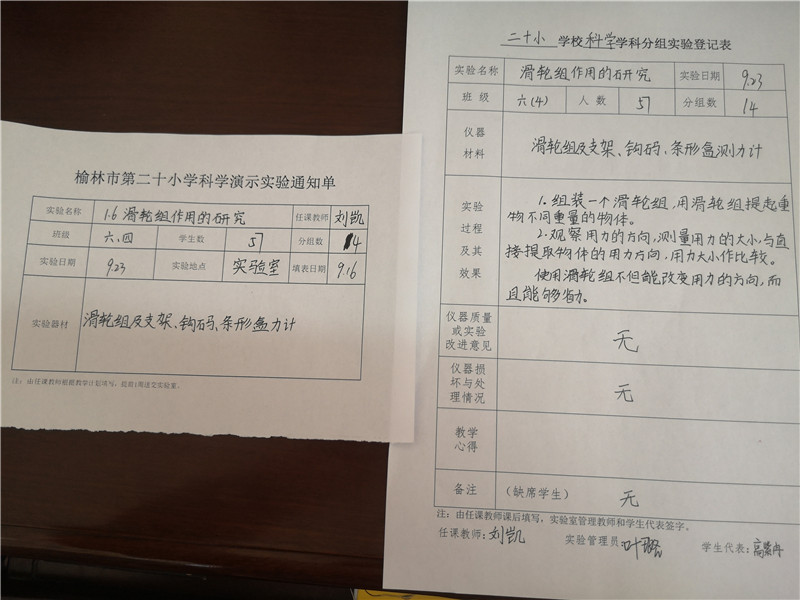 榆林市第二十小学科学演示实验通知单
实验名称 1.6 滑轮组作用的研究 任课教师 刘凯
班级 六、四 学生数 51 分组数 14
实验日期 9.23 实验地点 实验室 填表日期 9.16
实验器材 滑轮组及支架、钩码、条形盒力计
注:由任课教师根据教学计划填写,提前1周送交实验室。
二十小 学校 科学 学科分组实验登记表
实验名称 滑轮组作用的研究 实验日期 9.23
班级 六(4) 人数 51 分组数 14
仪器
材料
滑轮组及支架、钩码、条形盒测力计
实验
过程
及其
效果
1.组装一个滑轮组,用滑轮组提起重
物不同重量的物体。
2.观察用力的方向,测量用力的大小,与直
接提取物体的用力方向,用力大小作比较。
使用滑轮组不但能改变用力的方向,而
且能够省力。
仪器质量
或实验
改进意见
无
仪器损
坏与处
理情况
无
教学
心得
备注 (缺席学生) 无
注:由任课教师课后填写,实验室管理教师和学生代表签字。
任课教师:刘凯 实验管理员:叶 学生代表:高